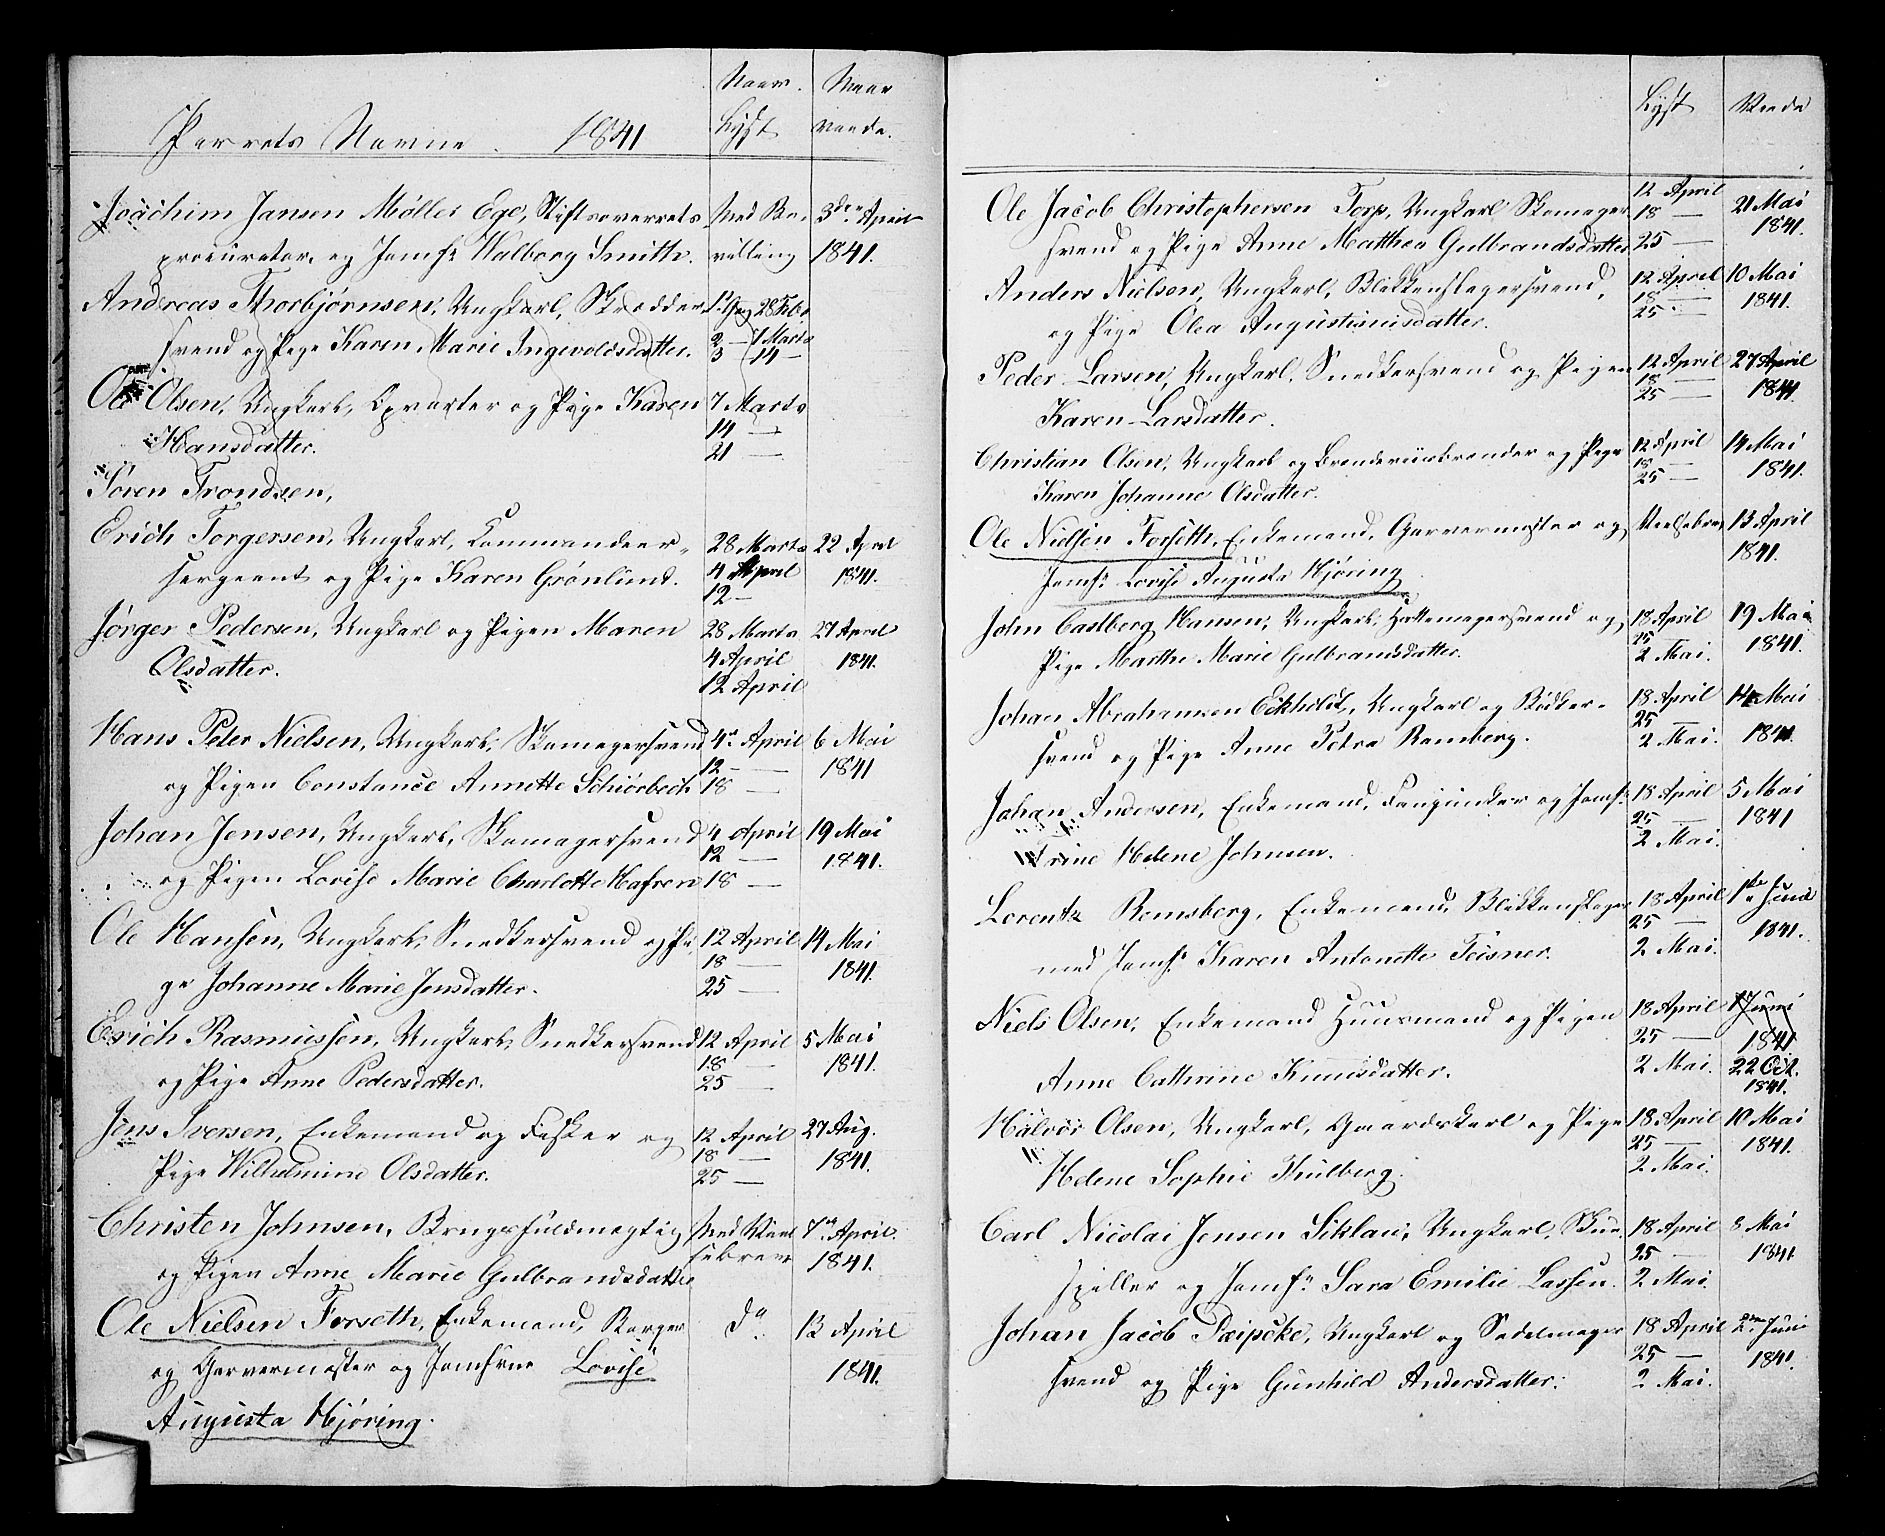 Parrets Navne. 1841
Naar Lyst
Naar viede.
Joachim Jansen Møller Ege, Stiftsoverrets Med Be- 3die April
procurator, og Jomfr Walborg Smith. villing 1841.
Andreas Thorbjørnsen, Ungkarl, Skrædder 1ste Gang 28 Febr
svend og Pige Karen Marie Ingevoldsdatter. 2 — 7 Marts
3 14 —
Ole Olsen, Ungkarl, Opvarter og Pige Karen 7 Marts
14 —
Hansdatter. 21 —
Søren Trondsen,
Erich Torgersen, Ungkarl, Commandeer- 28 Marts 22 April
sergeant og Pige Karen Grønlund. 4 April 1841.
12 —
Jørger Pedersen, Ungkarl og Pigen Maren 28 Marts 27 April
Olsdatter. 4 April 1841.
12 April
Hans Peter Nielsen, Ungkarl, Skomagersvend 4 April 6 Mai
12 — 1841
og Pigen Constance Annette Schiörbech 18 —
Johan Jensen, Ungkarl, Skomagersvend 4 April 19 Mai
12 — 1841.
og Pigen Lovise Marie Charlotte Hafren 18 —
Ole Hansen, Ungkarl, Snedkersvend og Pi 12 April 14 Mai
18 — 1841.
ge Johanne Marie Jensdatter. 25 —
Erich Rasmussen, Ungkarl, Snedkersvend 12 April 5 Mai
18 — 1841.
og Pige Anne Pedersdatter. 25 —
Jens Iversen, Enkemand og Fisker og 12 April 27 Aug.
18 — 1841.
Pige Wilhelmine Olsdatter. 25 —
Christen Johnsen, Brugsfuldmægtig Med Viel 7de April.
og Pigen Anne Marie Gulbrandsdatter sebrev 1841.
Ole Nielsen Forseth, Enkemand, Borger do 13 April
og Garvermester og Jomfrue Lovise 1841.
Augusta Hjøring.
Lyst Viede
Ole Jacob Christophersen Torp, Ungkarl Skomager 12 April 21 Mai
18 — 1841.
svend og Pige Anne Matthea Gulbrandsdatter 25 —
Anders Nielsen, Ungkarl, Blikkenslagersvend, 12 April 10 Mai
18 — 1841.
og Pige Olea Augustinusdatter. 25 —
Peder Larsen, Ungkarl, Snedkersvend og Pigen 12 April 27 April
18 — 1841
Karen Larsdatter. 25 —
Christian Olsen, Ungkarl og Brændeviinsbrænder og Pige 12 April 14 Mai
18 — 1841.
Karen Johanne Olsdatter. 25 —
Ole Nielsen Forseth, Enkemand, Garvermester og Vielsebrev 13 April
1841.
Jomfr Lovise Augusta Hjøring
John Castberg Hansen, Ungkarl, Hattemagersvend og 18 April 19 Mai
25 1841.
Pige Marthe Marie Gulbrandsdatter. 2 Mai.
Johan Abrahamsen Eckholdt, Ungkarl og Bødker- 18 April 14 Mai
25 — 1841.
svend og Pige Anne Petra Ramberg. 2 Mai.
Johan Andersen, Enkemand, Fangjunker og Jomfr 18 April 5 Mai
25 — 1841
Trine Helene Johnsen. 2 Mai.
Lorentz Ramsberg, Enkemand, Blikkenslager 18 April 1ste Juni
25 — 1841.
med Jomfr Karen Antonette Teisner. 2 Mai.
Niels Olsen, Enkemand Huusmand og Pigen 18 April 1 Juni
25 — 1841
Anne Cathrine Knudsdatter. 2 Mai. 22 Oct.
1841.
Halvor Olsen, Ungkarl, Gaardskarl og Pige 18 April 10 Mai
25 — 1841.
Helene Sophie Thulberg. 2 Mai.
Carl Nicolai Jensen Siklau, Ungkarl, Skue 18 April 8 Mai
25 — 1841
spiller og Jomfr Sara Emilie Lassen. 2 Mai.
Johan Jacob Pæipcke, Ungkarl og Sadelmager 18 April 2den Juni
25 — 1841.
svend og Pige Gunhild Andersdatter. 2 Mai.